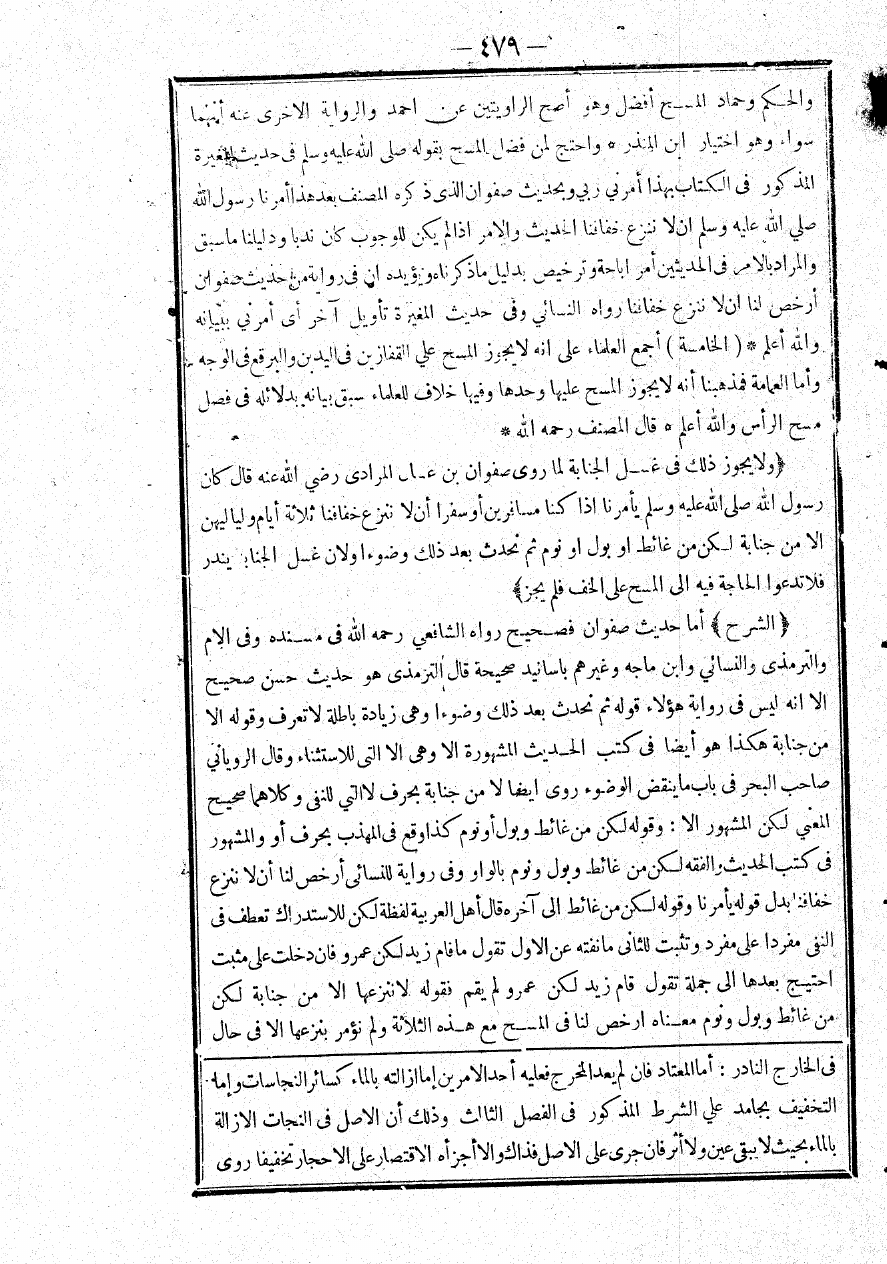 — ٤٧٩ —
والحكم وحماد المسح أفضل وهو أصح الراويتين عن احمد والرواية الاخرى عنه أنهما
سواء وهو اختيار ابن المنذر * واحتج لمن فضل المسح بقوله صلى الله عليه وسلم فى حديث المغيرة
المذكور فى الكتاب بهذا أمرني ربي وبحديث صفوان الذى ذكره المصنف بعد هذا أمرنا رسول الله
صلي الله عليه وسلم ان لا ننزع خفافنا الحديث والامر اذا لم يكن للوجوب كان ندبا ودليلنا ما سبق
والمراد بالامر فى الحديثين أمر اباحة وترخيص بدليل ما ذكرناه ويؤيده ان فى رواية من حديث صفوان
أرخص لنا ان لا ننزع خفافنا رواه النسائي وفى حديث المغيرة تأويل آخر أى أمرني ببيانه
والله أعلم * ( الخامسة ) أجمع العلماء على انه لا يجوز المسح علي القفازين فى اليدين والبرقع فى الوجه
وأما العمامة فمذهبنا أنه لا يجوز المسح عليها وحدها وفيها خلاف للعلماء سبق بيانه بدلائله فى فصل
مسح الرأس والله أعلم * قال المصنف رحمه الله *
﴿ ولا يجوز ذلك فى غسل الجنابة لما روى صفوان بن عسال المرادى رضي الله عنه قال كان
رسول الله صلى الله عليه وسلم يأمرنا اذا كنا مسافرين أو سفرا أن لا ننزع خفافنا ثلاثة أيام ولياليهن
الا من جنابة لكن من غائط او بول او نوم ثم نحدث بعد ذلك وضوءا ولان غسل الجنابة يندر
فلا تدعوا الحاجة فيه الى المسح على الخف فلم يجز ﴾
﴿ الشرح ﴾ أما حديث صفوان فصحيح رواه الشافعي رحمه الله فى مسنده وفى الام
والترمذى والنسائي وابن ماجه وغيرهم باسانيد صحيحة قال الترمذى هو حديث حسن صحيح
الا انه ليس فى رواية هؤلاء قوله ثم نحدث بعد ذلك وضوءا وهى زيادة باطلة لا تعرف وقوله الا
من جنابة هكذا هو أيضا فى كتب الحديث المشهورة الا وهى الا التى للاستثناء وقال الروياني
صاحب البحر فى باب ما ينقض الوضوء روى ايضا لا من جنابة بحرف لا التي للنفى وكلاهما صحيح
المعني لكن المشهور الا : وقوله لكن من غائط وبول أو نوم كذا وقع فى المهذب بحرف أو والمشهور
فى كتب الحديث والفقه لكن من غائط وبول ونوم بالواو وفى رواية للنسائى أرخص لنا أن لا ننزع
خفافنا بدل قوله يأمرنا وقوله لكن من غائط الى آخره قال أهل العربية لفظة لكن للاستدراك تعطف فى
النفى مفردا على مفرد وتثبت للثانى ما نفته عن الاول تقول ما قام زيد لكن عمرو فان دخلت على مثبت
احتيج بعدها الى جملة تقول قام زيد لكن عمرو لم يقم فقوله لا ننزعها الا من جنابة لكن
من غائط وبول ونوم معناه ارخص لنا فى المسح مع هذه الثلاثة ولم نؤمر بنزعها الا فى حال
فى الخارج النادر : أما المعتاد فان لم يعد المخرج فعليه أحد الامرين إما ازالته بالماء كسائر النجاسات وإما
التخفيف بجامد علي الشرط المذكور فى الفصل الثالث وذلك أن الاصل فى النجات الازالة
بالماء بحيث لا يبقى عين ولا أثر فان جرى على الاصل فذاك والا أجزأه الاقتصار على الاحجار تخفيفا روى